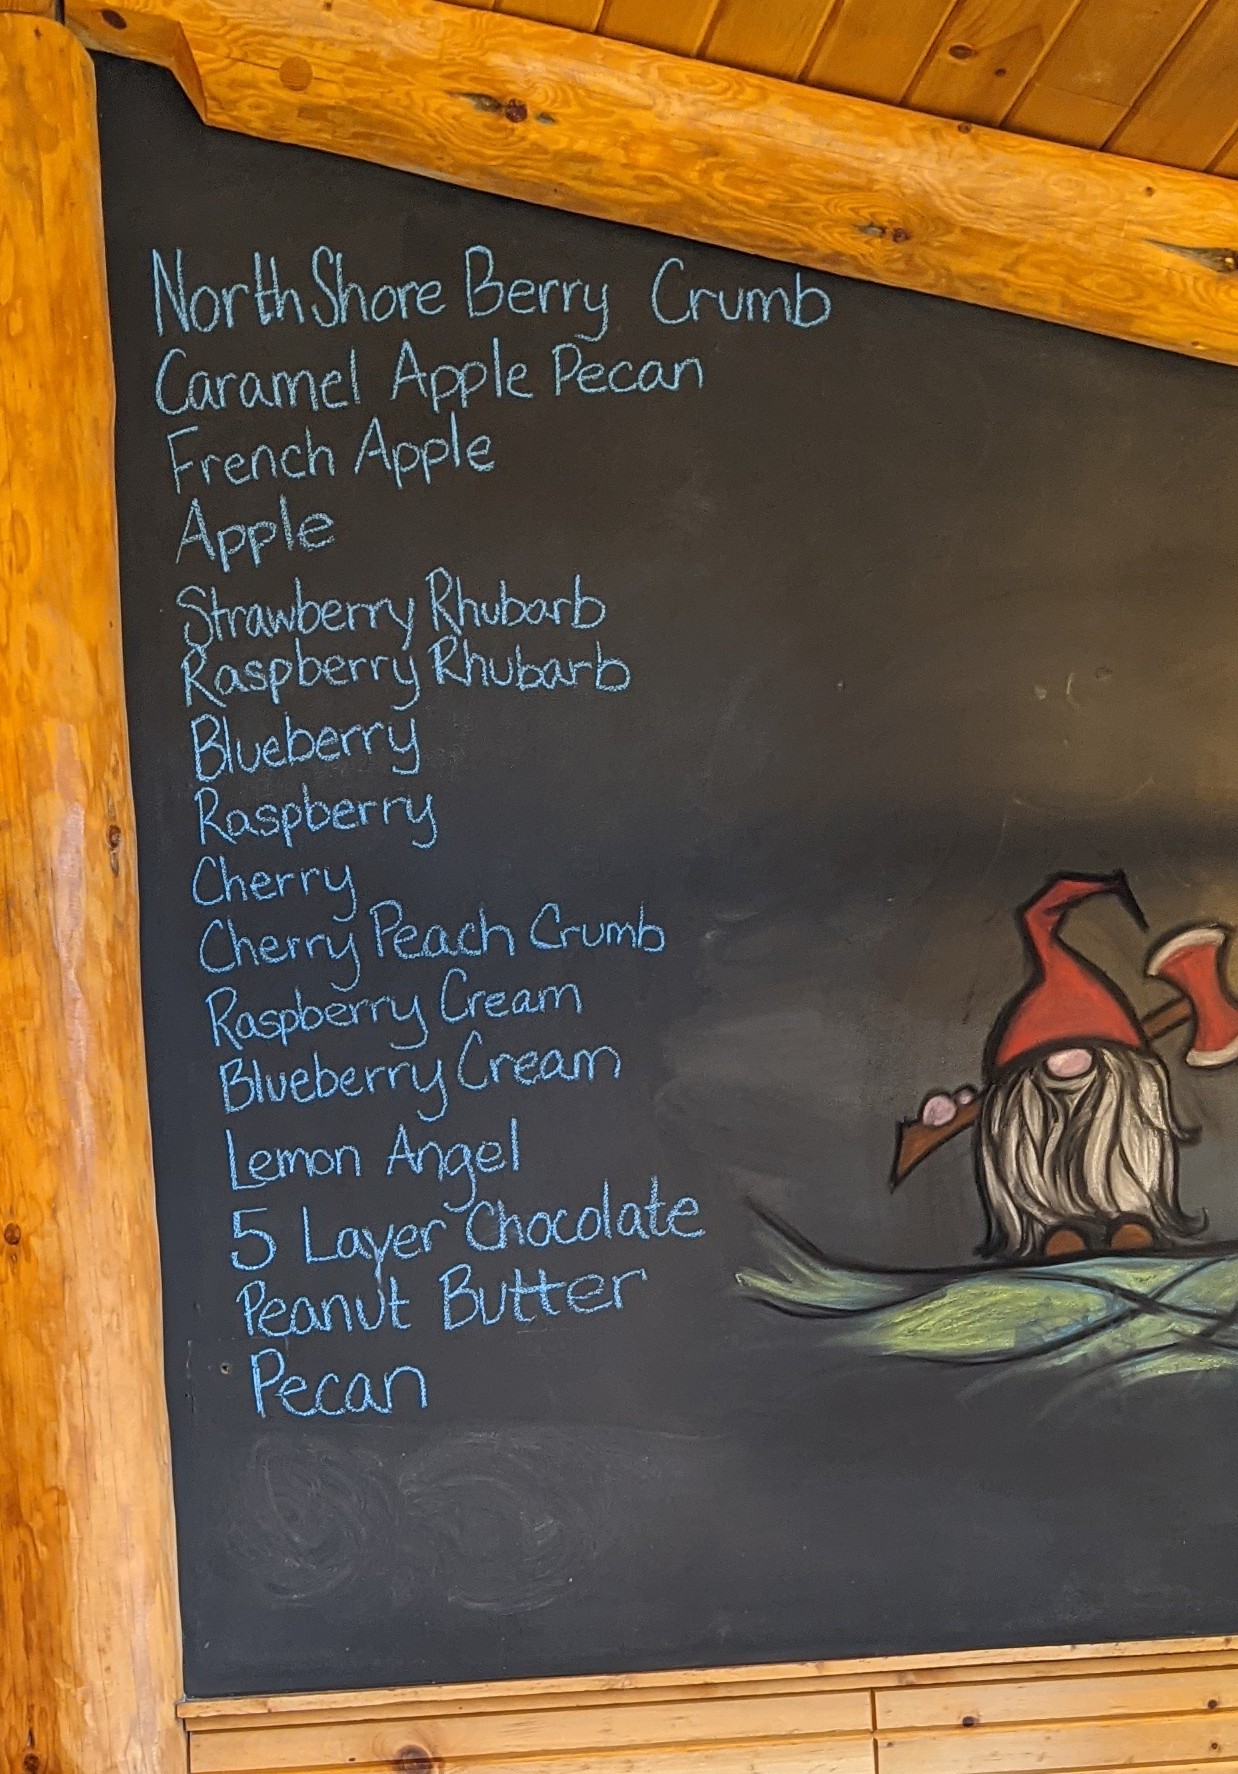 NorthShore Berry Crumb
Caramel Apple Pecan
French Apple
Apple
Strawberry Rhubarb
Raspberry Rhubarb
Blueberry
Raspberry
Cherry
Cherry Peach Crumb
Raspberry Cream
Blueberry Cream
Lemon Angel
5 Layer Chocolate
Peanut Butter
Pecan